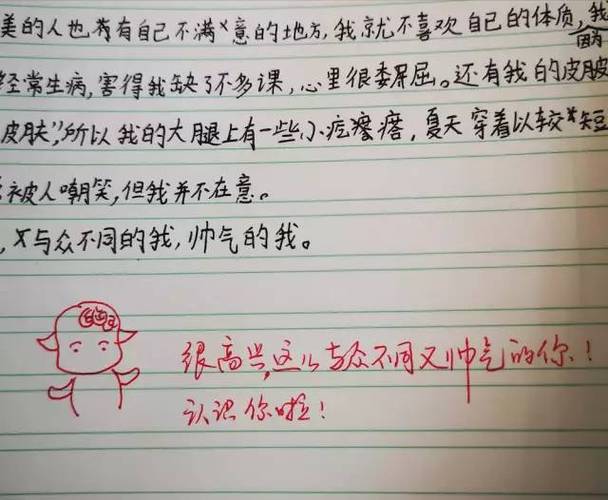 美的人也有自己不满意的地方,我就不喜欢自己的体质,我
因为
经常生病,害得我缺了不多课,心里很委屈。还有我的皮肤
皮肤",所以我的大腿上有一些小疙瘩,夏天穿着以较短
被人嘲笑,但我并不在意。
,又与众不同的我,帅气的我。
很高兴,这么与众不同又帅气的你!
认识你啦!